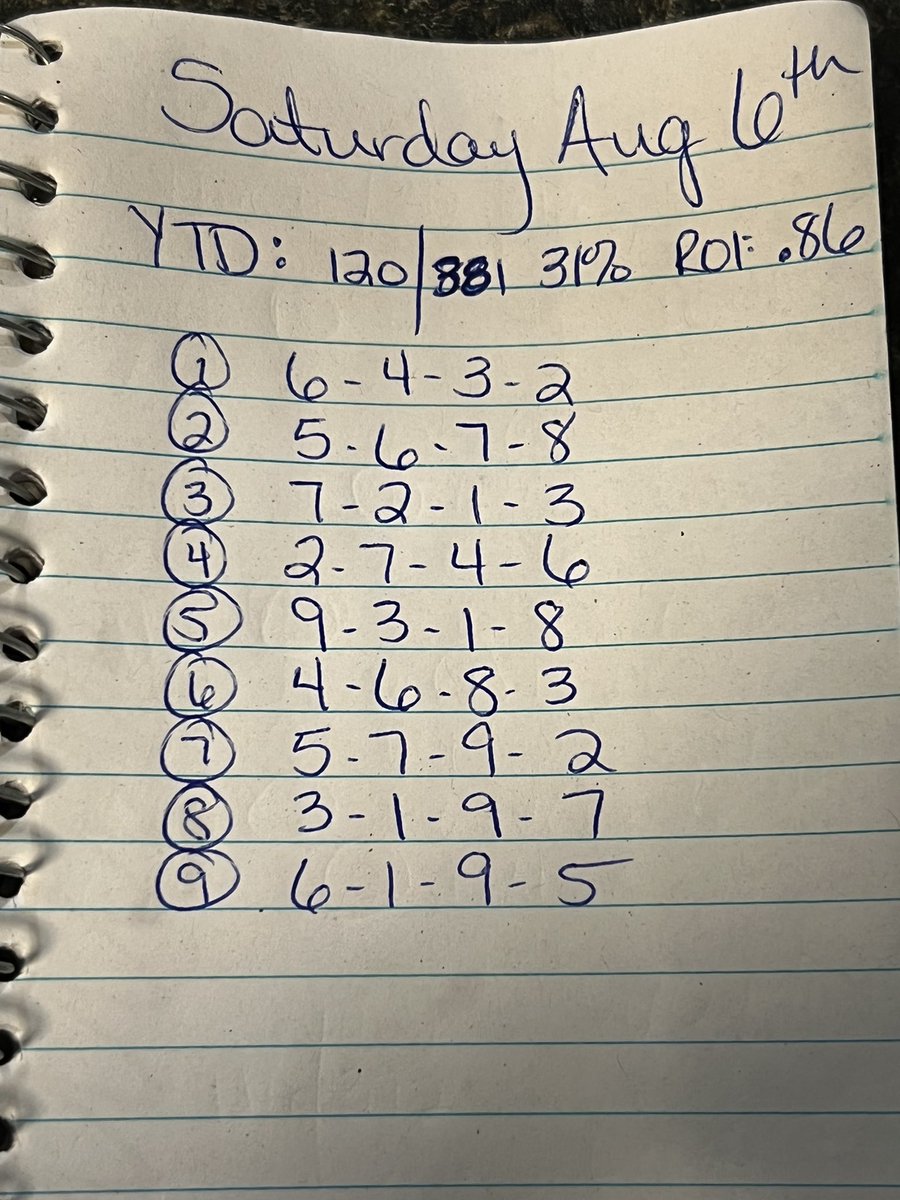 Saturday Aug 6th
YTD: 120/881 31% ROI: .86
1 6-4-3-2
2 5-6-7-8
3 7-2-1-3
4 2-7-4-6
5 9-3-1-8
6 4-6-8-3
7 5-7-9-2
8 3-1-9-7
9 6-1-9-5